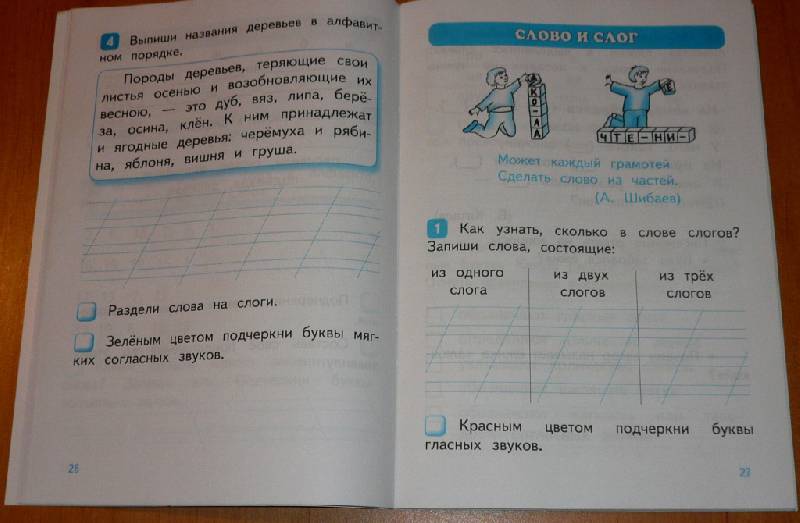 4 Выпиши названия деревьев в алфавит-
ном порядке.
Породы деревьев, теряющие свои
листья осенью и возобновляющие их
весною, — это дуб, вяз, липа, берё-
за, осина, клён. К ним принадлежат
и ягодные деревья: черёмуха и ряби-
на, яблоня, вишня и груша.
Раздели слова на слоги.
Зелёным цветом подчеркни буквы мяг-
ких согласных звуков.
28
СЛОВО И СЛОГ
КО-
ЛА
ЧТЕ-НИ-
Может каждый грамотей
Сделать слово из частей.
(А. Шибаев)
1 Как узнать, сколько в слове слогов?
Запиши слова, состоящие:
из одного слога
из двух слогов
из трёх слогов
Красным цветом подчеркни буквы
гласных звуков.
29